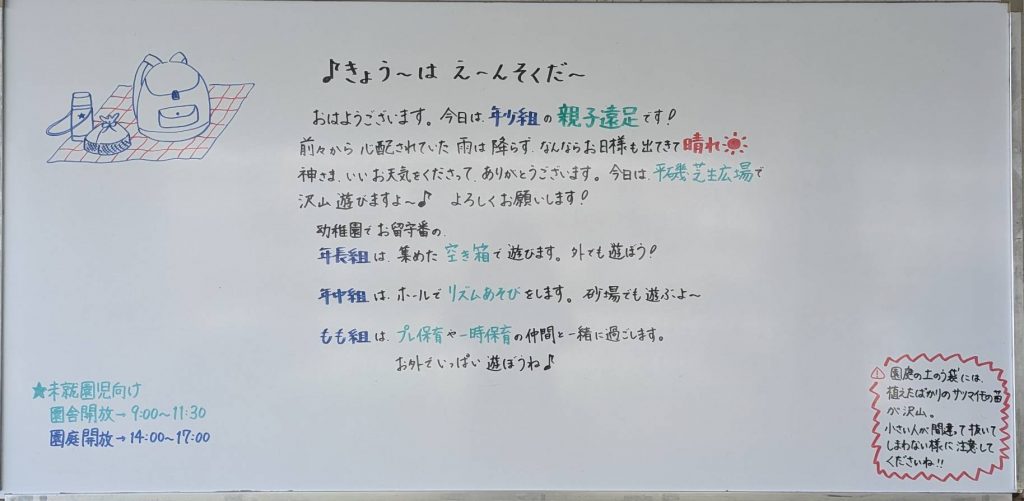 ♪きょう〜は え〜んそくだ〜
おはようございます。今日は、年少組の 親子遠足です!
前々から 心配されていた 雨は 降らず、なんならお日様も出てきて 晴れ
神さま、いいお天気をくださって、ありがとうございます。今日は、平磯芝生広場で
沢山 遊びますよ〜♪ よろしくお願いします!
幼稚園で お留守番の、
年長組は、集めた 空き箱で 遊びます。外でも 遊ぼう!
年中組は、ホールで リズムあそびをします。砂場でも 遊ぶよ〜
もも組は、プレ保育や一時保育の仲間と一緒に過ごします。
お外でいっぱい 遊ぼうね♪
★未就園児向け
園舎開放→9:00〜11:30
園庭開放→14:00〜17:00
園庭の土のう袋には、
植えたばかりのサツマイモの苗
が沢山。
小さい人が間違って抜いて
しまわない様に注意して
くださいね!!